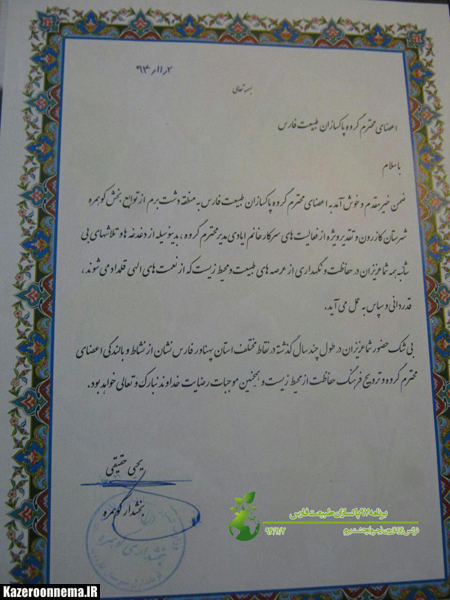 ۹۳،۱۱،۲
بسمه تعالی
اعضای محترم گروه پاکسازان طبیعت فارس
با سلام
ضمن خیر مقدم و خوش آمد به اعضای محترم گروه پاکسازان طبیعت فارس به منطقه دشت برم از توابع بخش کوهمره
شهرستان کازرون و تقدیر ویژه از فعالیت های سرکار خانم ابادی مدیر محترم گروه ، بدینوسیله از دغدغه ها و تلاشهای بی
شائبه همه شما عزیزان در حفاظت و نگهداری از عرصه های طبیعت و محیط زیست که از نعمت های الهی قلمداد می شوند ،
قدردانی و سپاس به عمل می آید.
بی شک حضور شما عزیزان در طول چند سال گذشته در نقاط مختلف استان پهناور فارس نشان از نشاط و بالندگی اعضای
محترم گروه و ترویج فرهنگ حفاظت از محیط زیست و همچنین موجبات رضایت خداوند تبارک و تعالی خواهد بود.
یحیی حقیقی
بخشدار کوهمره
بخشداری کوهمره
برنامه ۱۷ پاکسازان طبیعت فارس
Kazeroonnema.IR